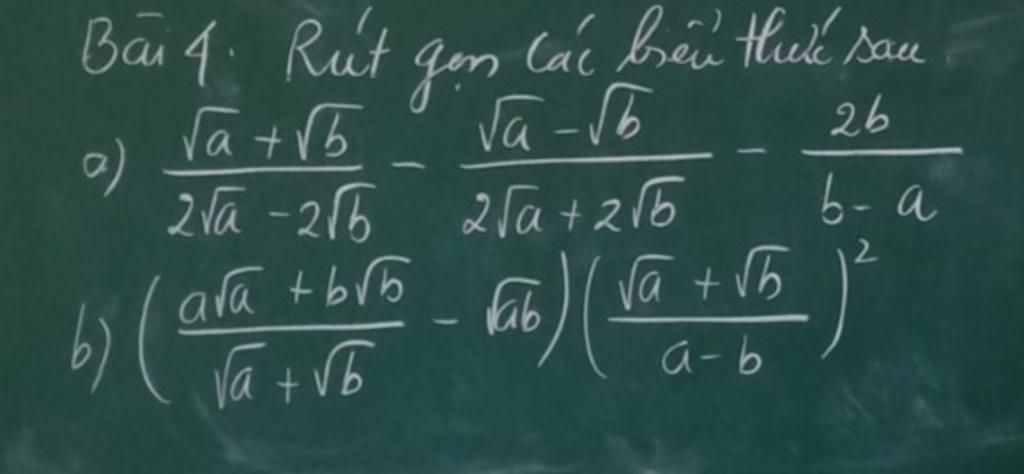 Bài 4. Rút gọn các biểu thức sau
a) (√a + √b)/(2√a - 2√b) - (√a - √b)/(2√a + 2√b) - 2b/(b - a)
b) ((a√a + b√b)/(√a + √b) - √ab)((√a + √b)/(a - b))²